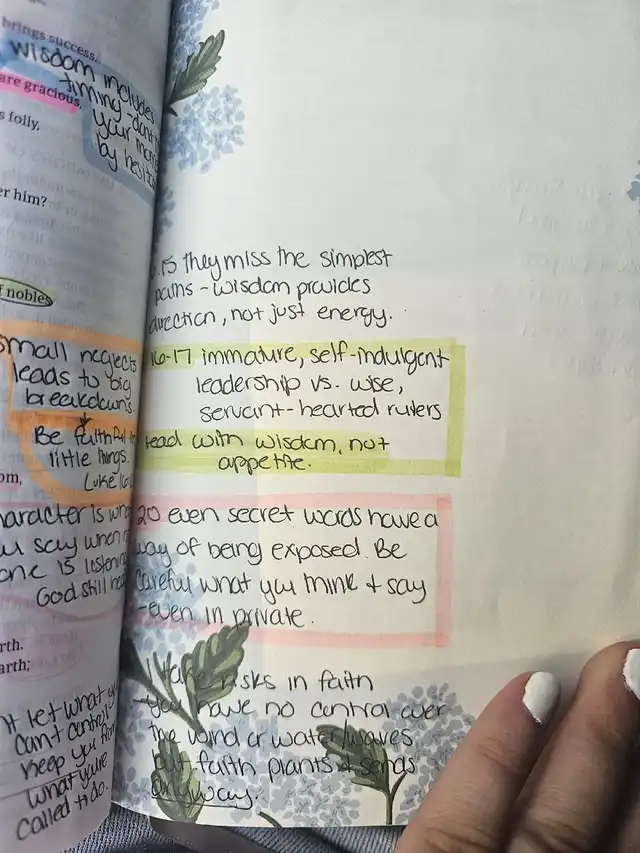 brings success.
wisdom includes
timing - don't
your
by
are gracious,
s folly,
er him?
f nobles
small neglects
leads to big
breakdowns.
Be faithful
little things.
Luke
om,
what
say when
one is
God still
rth.
arth;
let what
can't control
keep you
what you're
called to do.
.15 they miss the simplest
paths - wisdom provides
direction, not just energy.
16-17 immature, self-indulgent
leadership vs. wise,
servant-hearted rulers
lead with wisdom, not
appetite.
20 even secret words have a
way of being exposed. Be
careful what you think + say
-even in private.
Take risks in faith
- you have no control over
the wind or water/waves
but faith plants + sends
anyway.